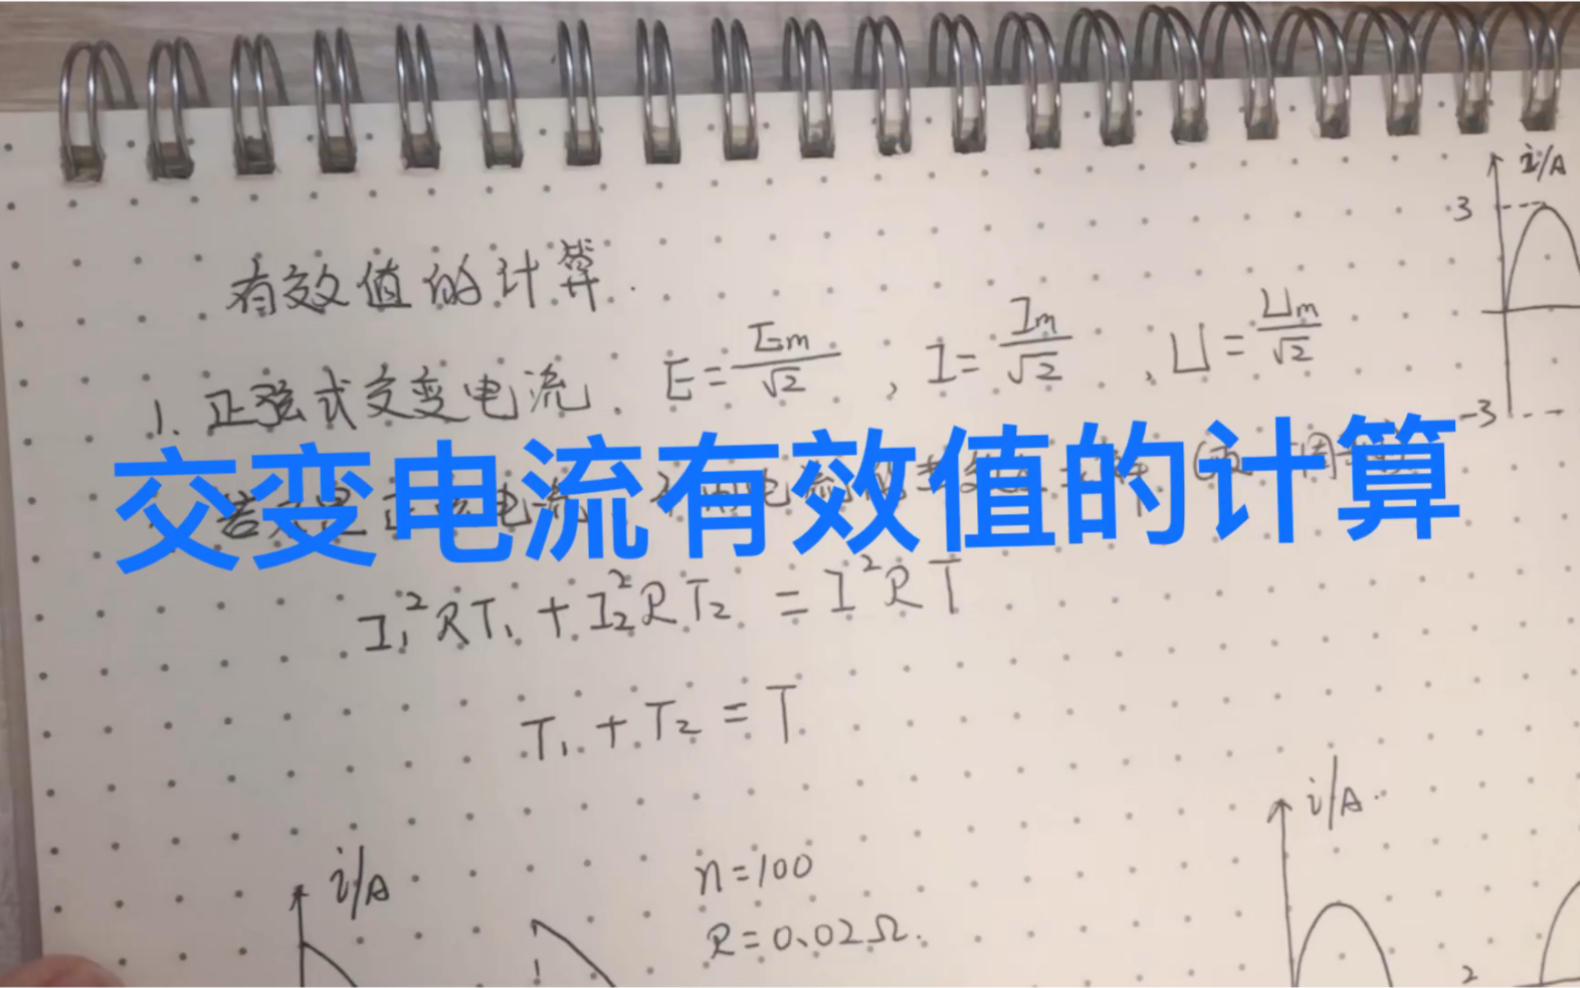 有效值的计算.
1. 正弦式交变电流. E=Em/√2 , I=Im/√2 , U=Um/√2
交变电流有效值的计算
I₁²RT₁+I₂²RT₂=I²RT
T₁+T₂=T
i/A
3
-3
i/A
n=100
R=0.02Ω.
i/A.
2